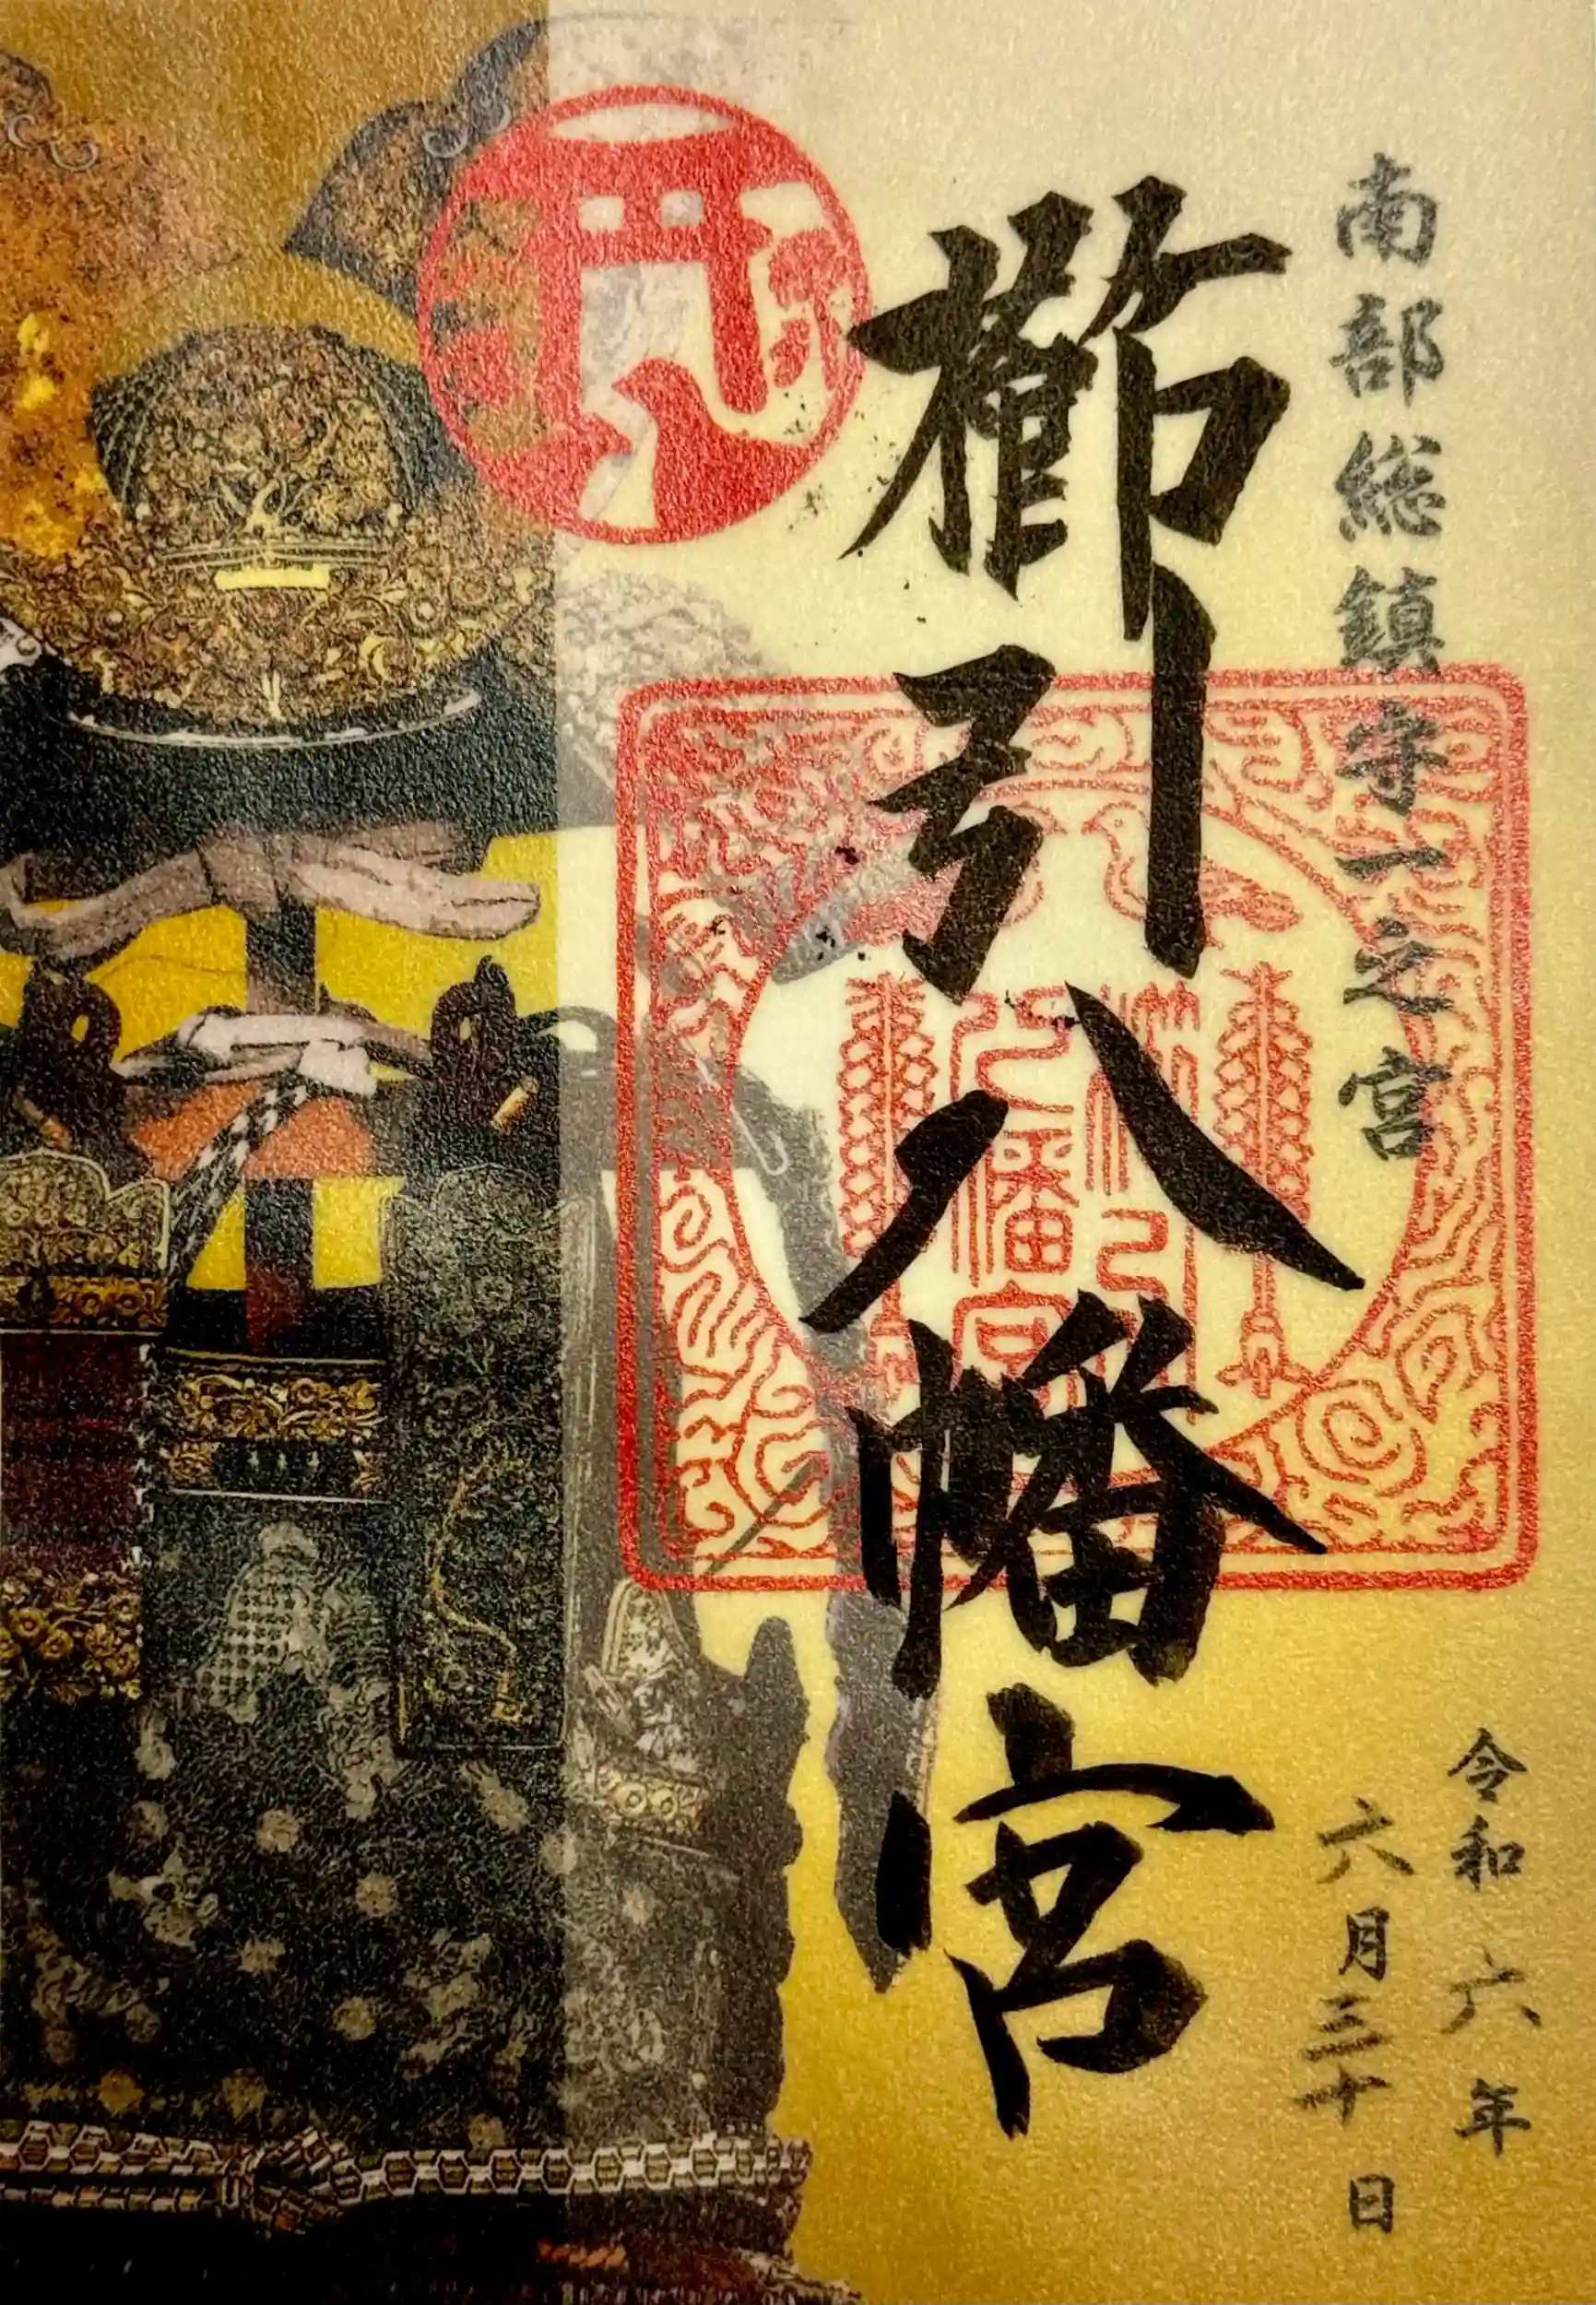 南部総鎮守一之宮
櫛引八幡宮
令和六年
六月三十日